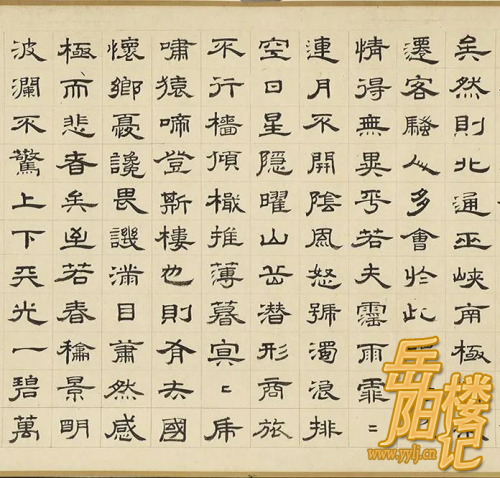 矣然則北通巫峽南極
遷客騷人多會於此
情得無異乎若夫霪雨霏〻
連月不開陰風怒號濁浪排
空日星隱曜山岳潛形商旅
不行檣傾檝摧薄暮冥〻虎
嘯猿啼登斯樓也則有去國
懷鄉憂讒畏譏滿目蕭然感
極而悲者矣至若春龢景明
波瀾不驚上下天光一碧萬
岳阳楼记
www.yylj.cn